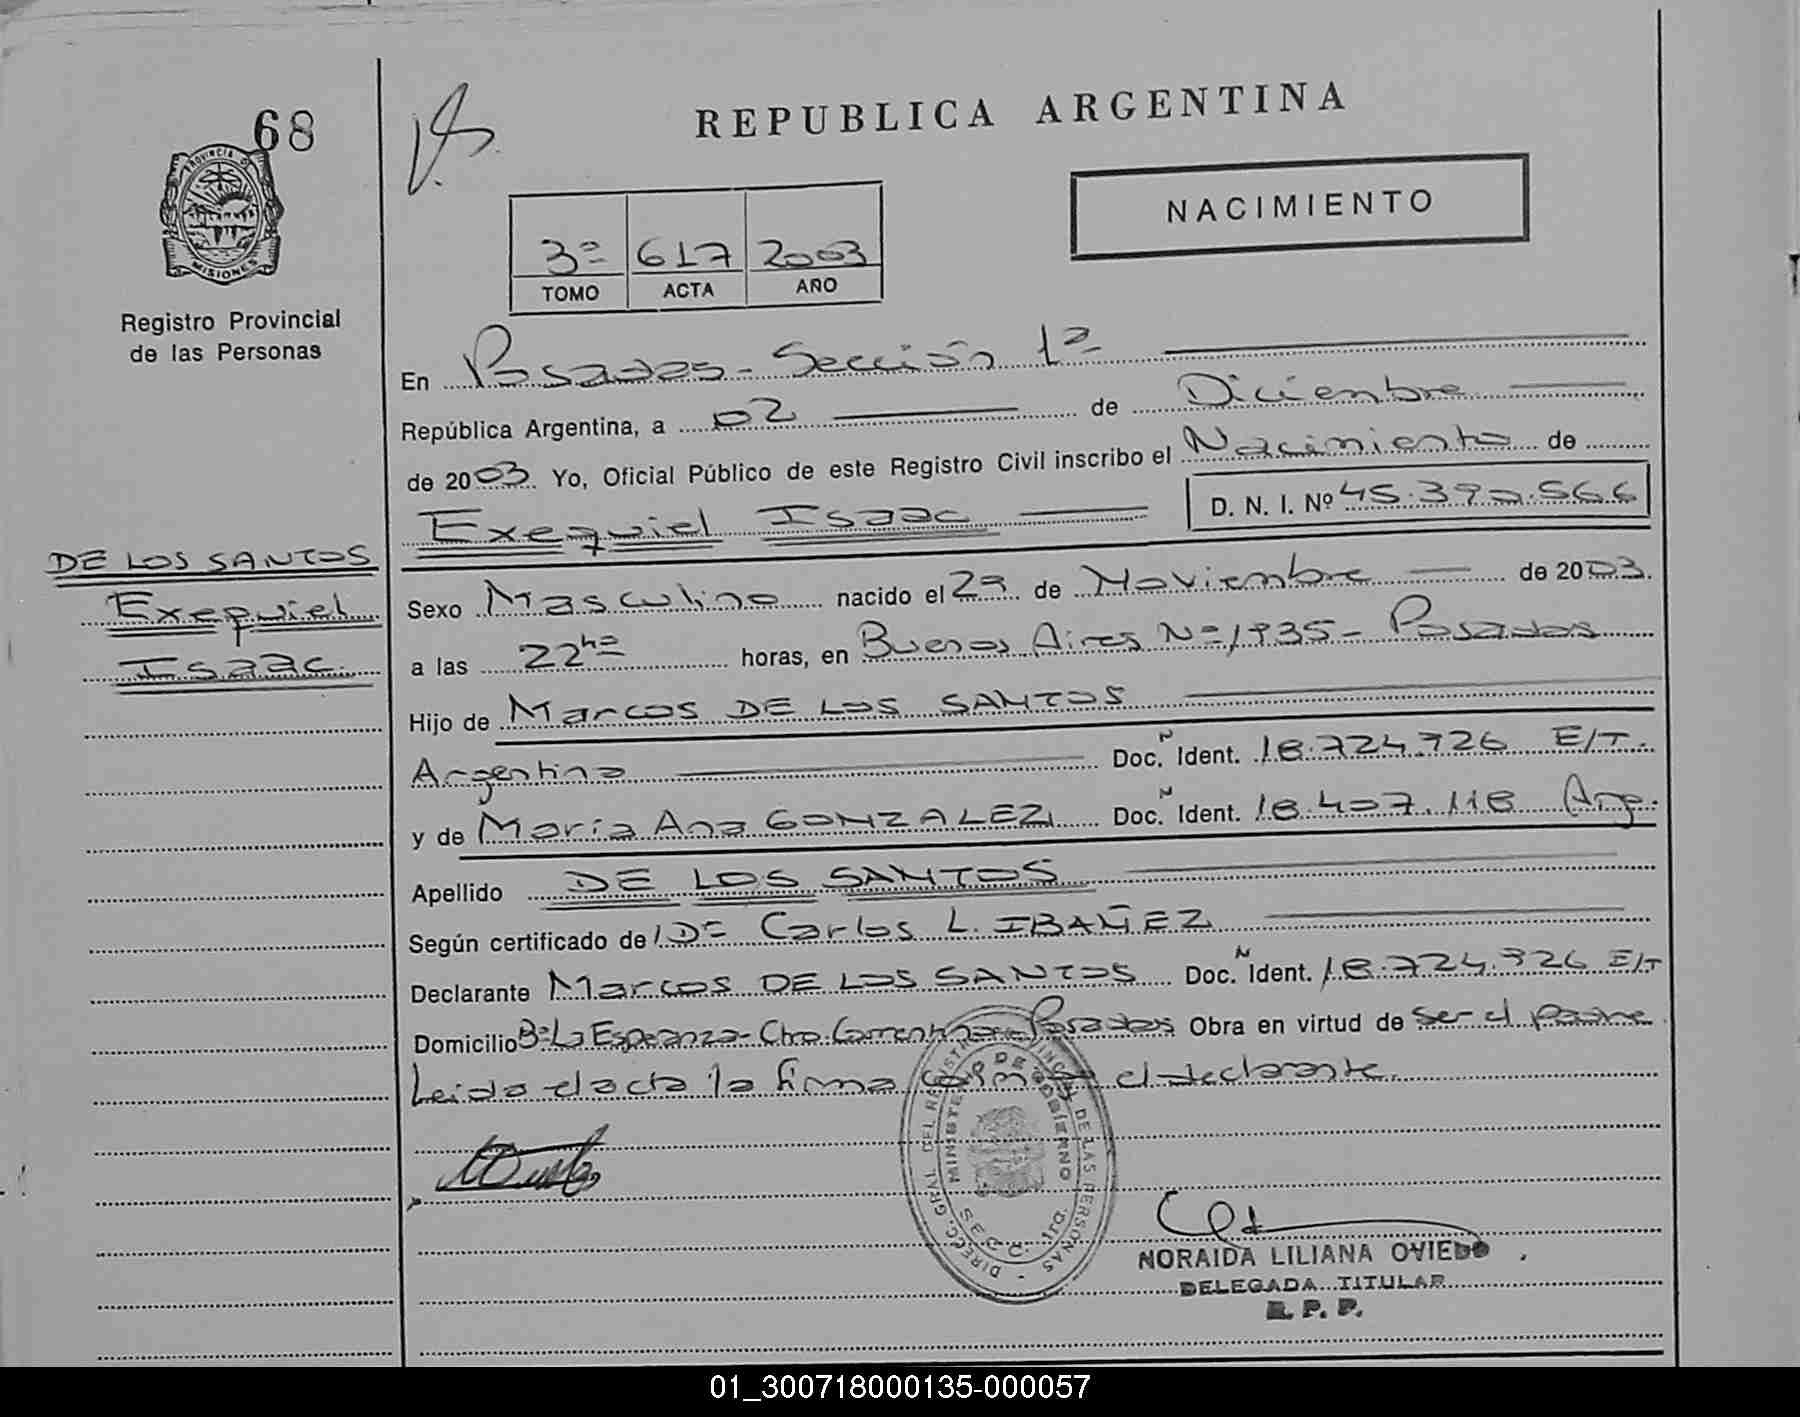 68
PROVINCIA DE
MISIONES
Registro Provincial
de las Personas
REPUBLICA ARGENTINA
NACIMIENTO
3º 617 2003
TOMO ACTA AÑO
En Posadas - Sección 1ª
República Argentina, a 02 de Diciembre
de 2003. Yo, Oficial Público de este Registro Civil inscribo el Nacimiento de
Exequiel Isaac D. N. I. Nº 45.392.566
DE LOS SANTOS
Exequiel
Isaac
Sexo Masculino nacido el 29 de Noviembre de 2003.
a las 22hs horas, en Buenos Aires Nº 1935 - Posadas
Hijo de Marcos DE LOS SANTOS
Argentino Doc. N Ident. 18.724.726 E/T.
y de María Ana GONZALEZ Doc. N Ident. 18.407.118 Arg.
Apellido DE LOS SANTOS
Según certificado de Dr Carlos L. IBAÑEZ
Declarante Marcos DE LOS SANTOS Doc. N Ident. 18.724.726 E/T
Domicilio Bº La Esperanza - Posadas Obra en virtud de ser el padre
Leida el acta la firma el declarante.
DIRECC. GRAL. DEL REGISTRO PROVINCIAL DE LAS PERSONAS
MINISTERIO DE GOBIERNO
1ra.
NORAIDA LILIANA OVIEDO
DELEGADA TITULAR
R. P. P.
01_300718000135-000057